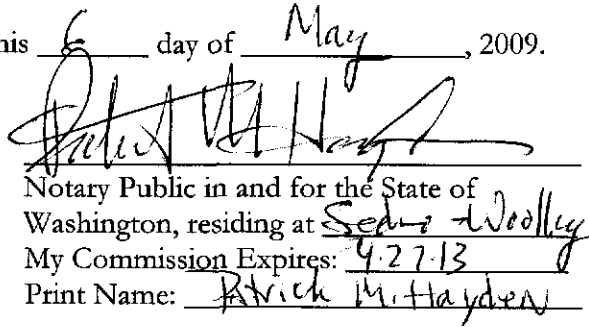 his 6 day of May, 2009.
Patrick M Hayden
Notary Public in and for the State of
Washington, residing at Sedro-Woolley
My Commission Expires: 4.27.13
Print Name: Patrick M. Hayden